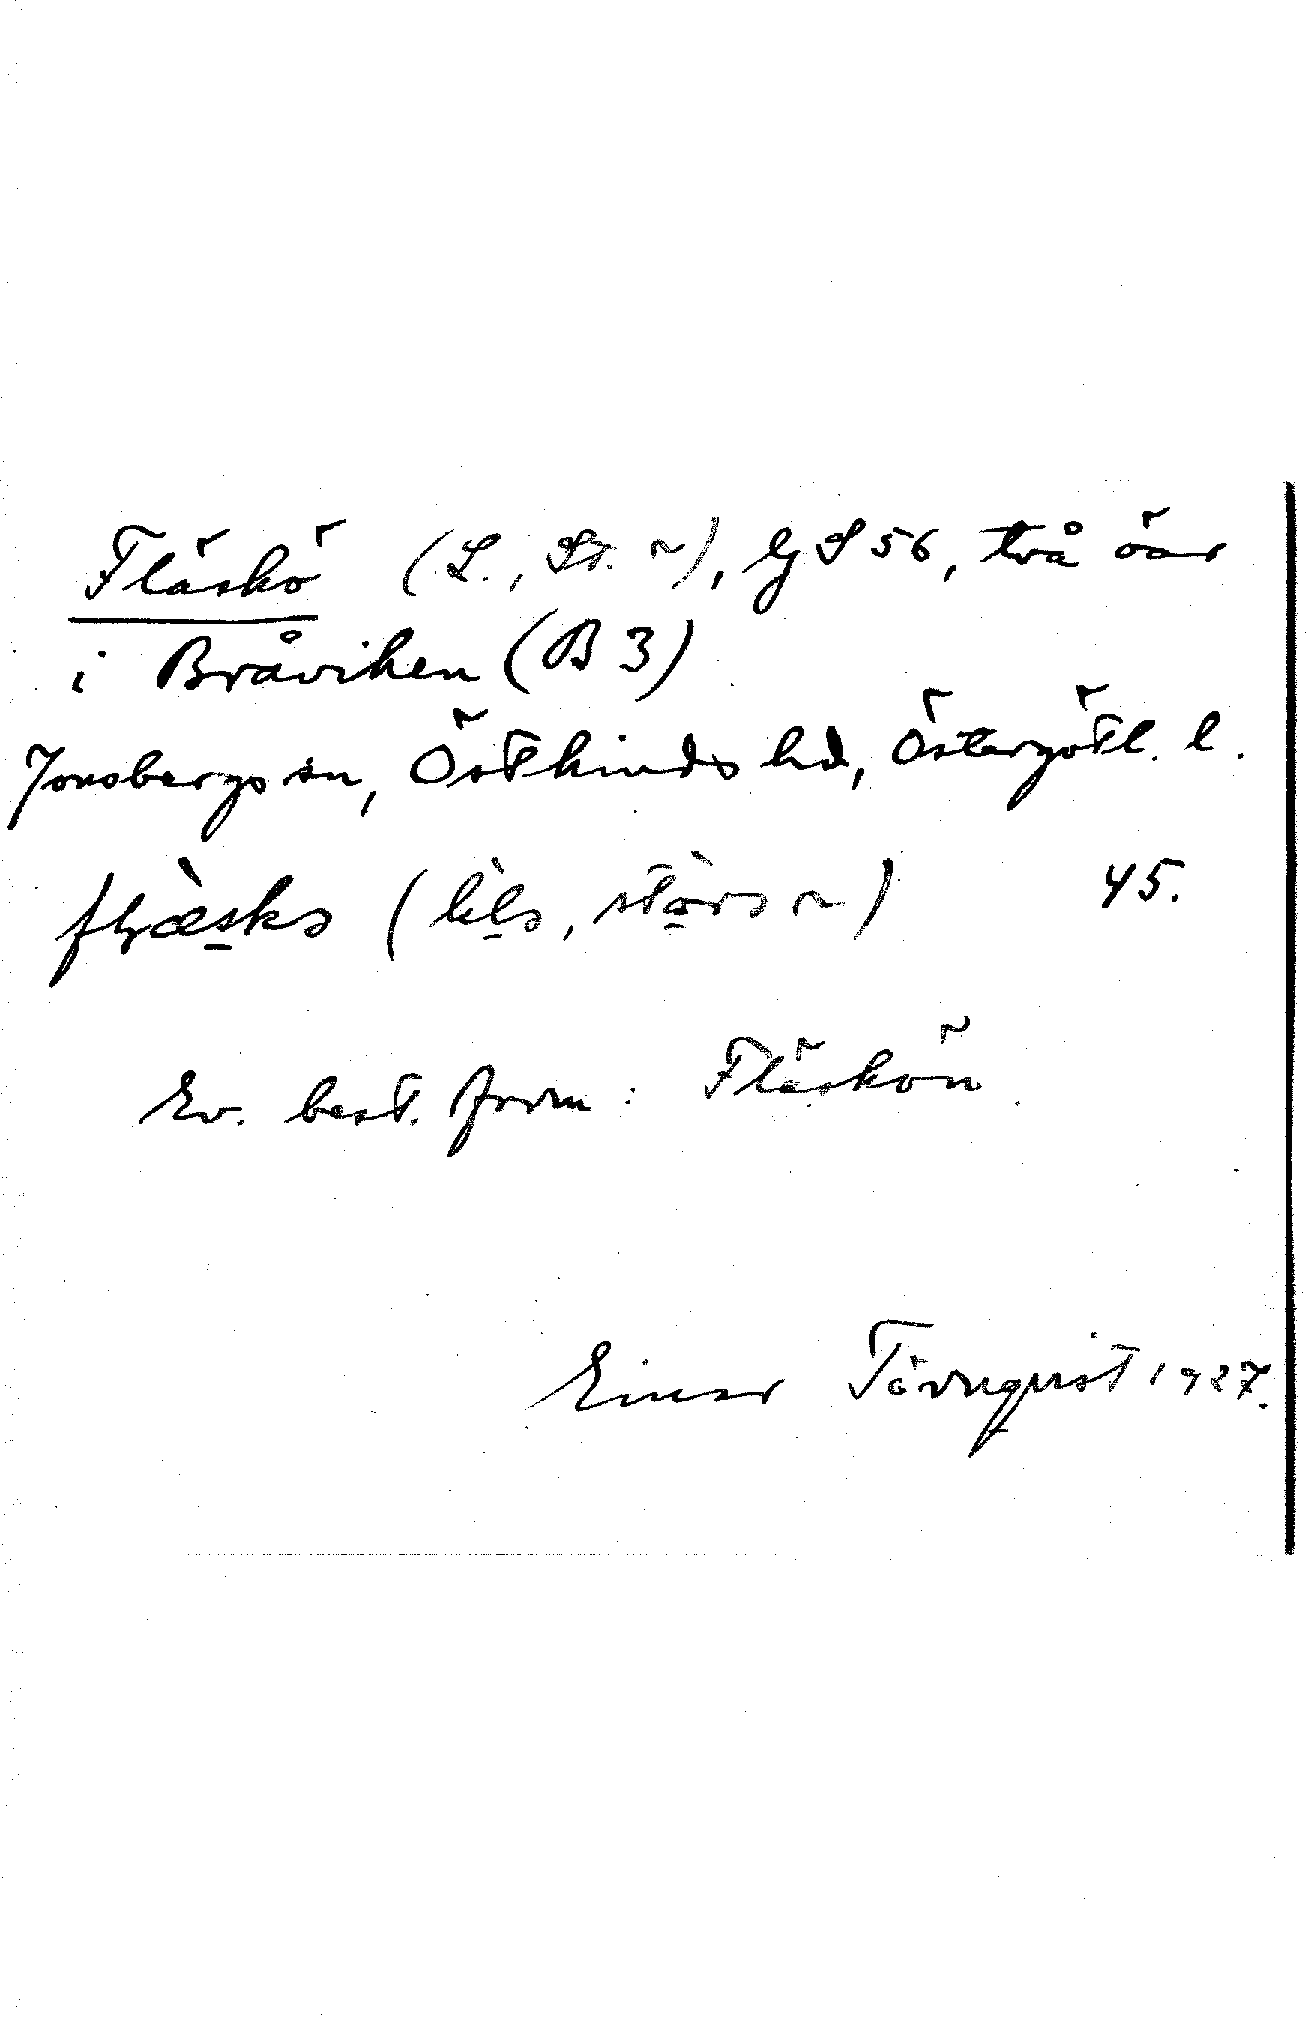 Fläskö (L., St. ~), Gj S 56, två öar
i Bråviken (B 3)
Jonsbergs sn, Östkinds hd, Östergötl. l.
45.
Ev. best. form: Fläskön
Einar Törnqvist 1927.